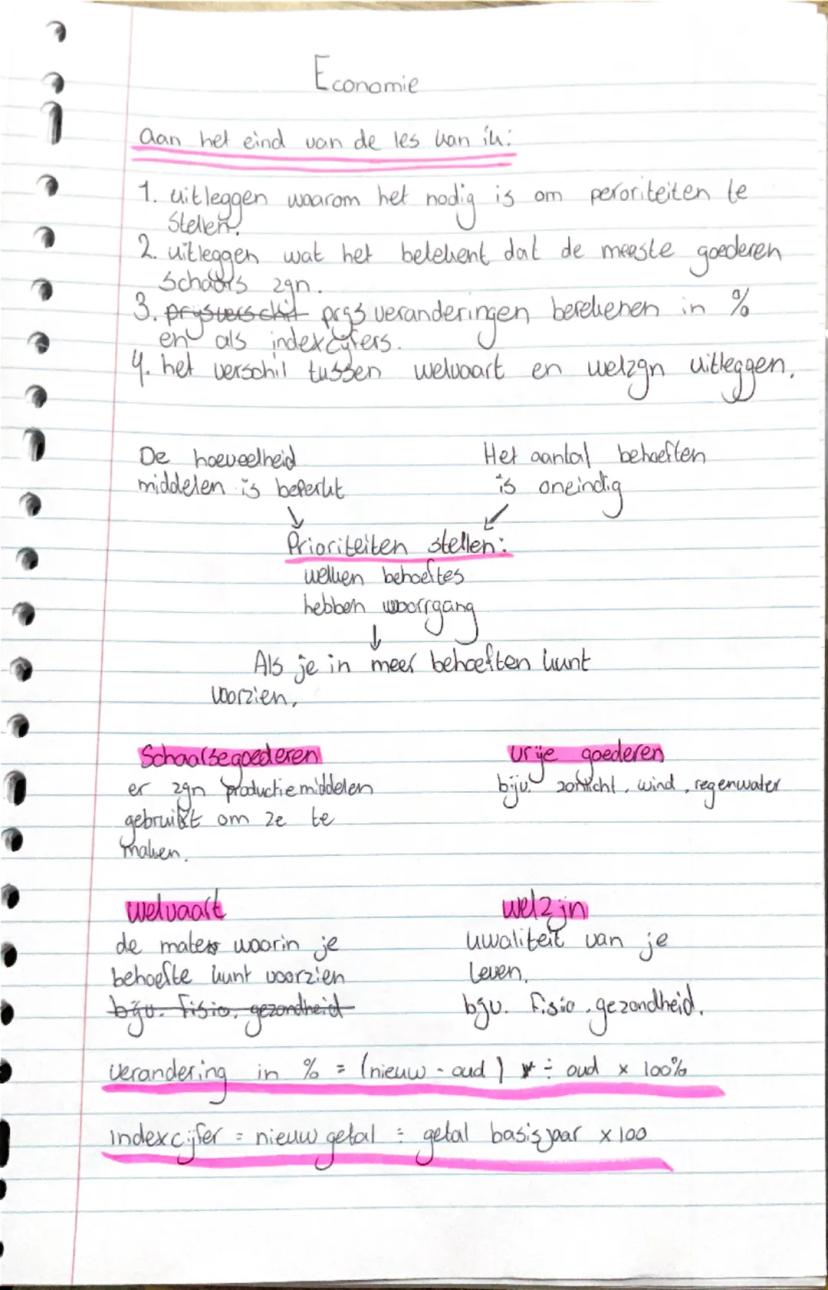 Economie
Aan het eind van de les kan ik:
1. uitleggen waarom het nodig is om peroriteiten te
stellen.
2. uitleggen wat het betekent dat de meeste goederen
schaars zijn.
3. prijsverschil prijs veranderingen berekenen in %
en als indexcijfers.
4. het verschil tussen welvaart en welzijn uitleggen.
De hoeveelheid
middelen is beperkt
Het aantal behoeften
is oneindig
Prioriteiten stellen:
welken behoeftes
hebben voorrgang
Als je in meer behoeften kunt
voorzien.
Schaarsegoederen
er zijn productiemiddelen
gebruikt om ze te
maken.
vrije goederen
bijv. zonlicht, wind, regenwater
welvaart
de mate waarin je
behoefte kunt voorzien
bijv. fisio, gezondheid
welzijn
kwaliteit van je
leven.
bijv. fisio, gezondheid.
verandering in % = (nieuw - oud) ÷ oud x 100%
indexcijfer = nieuw getal ÷ getal basisjaar x 100